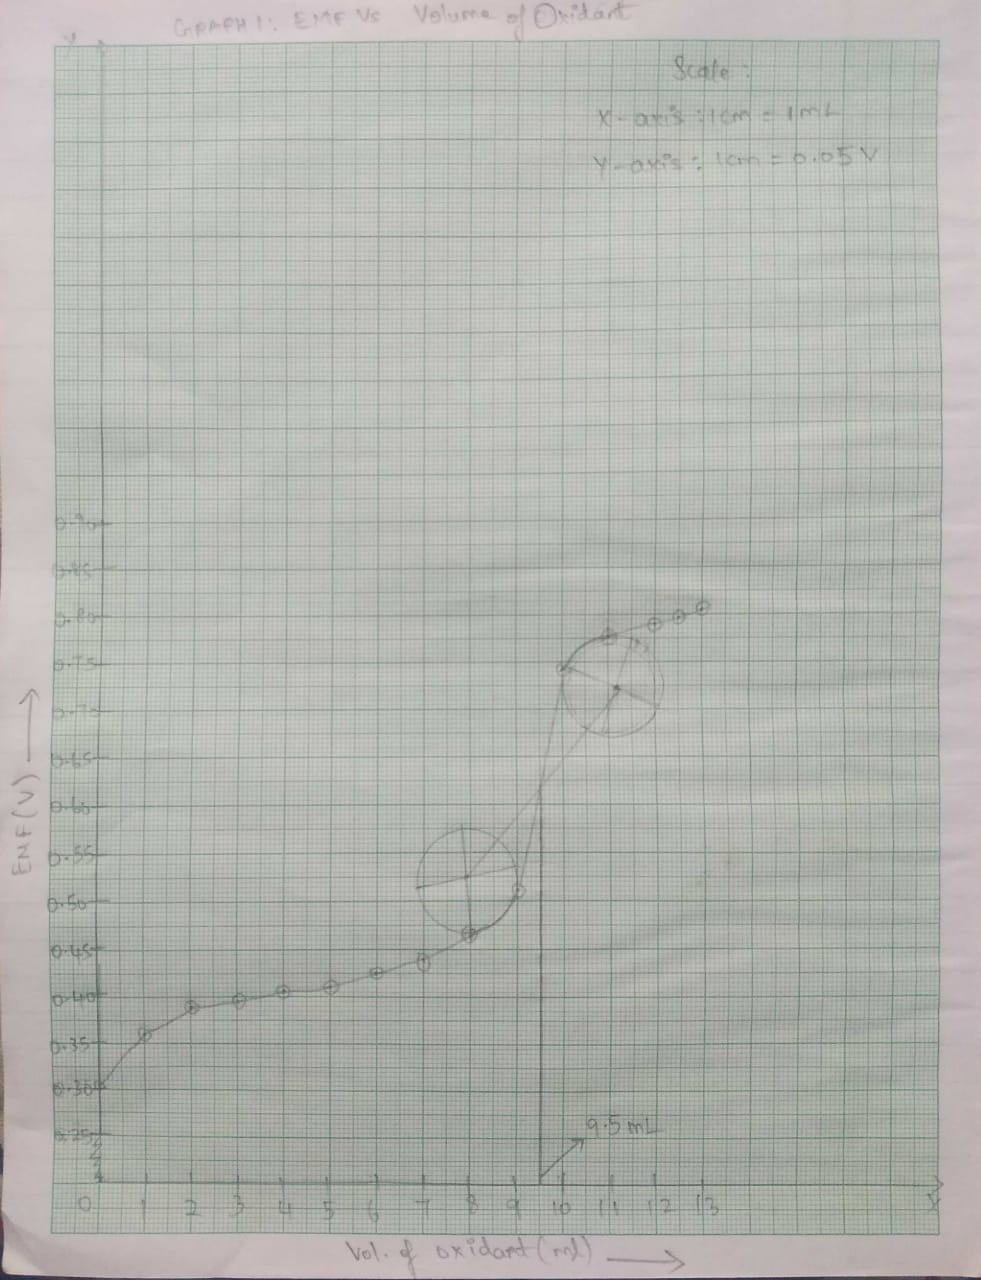 GRAPH 1: EMF Vs Volume of Oxidant
Y
Scale :
X-axis : 1cm = 1mL
Y-axis : 1cm = 0.05 V
0.90
0.85
0.80
0.75
0.70
0.65
0.60
0.55
0.50
0.45
0.40
0.35
0.30
0.25
EMF (V)
9.5 mL
0 1 2 3 4 5 6 7 8 9 10 11 12 13
Vol. of oxidant (ml)